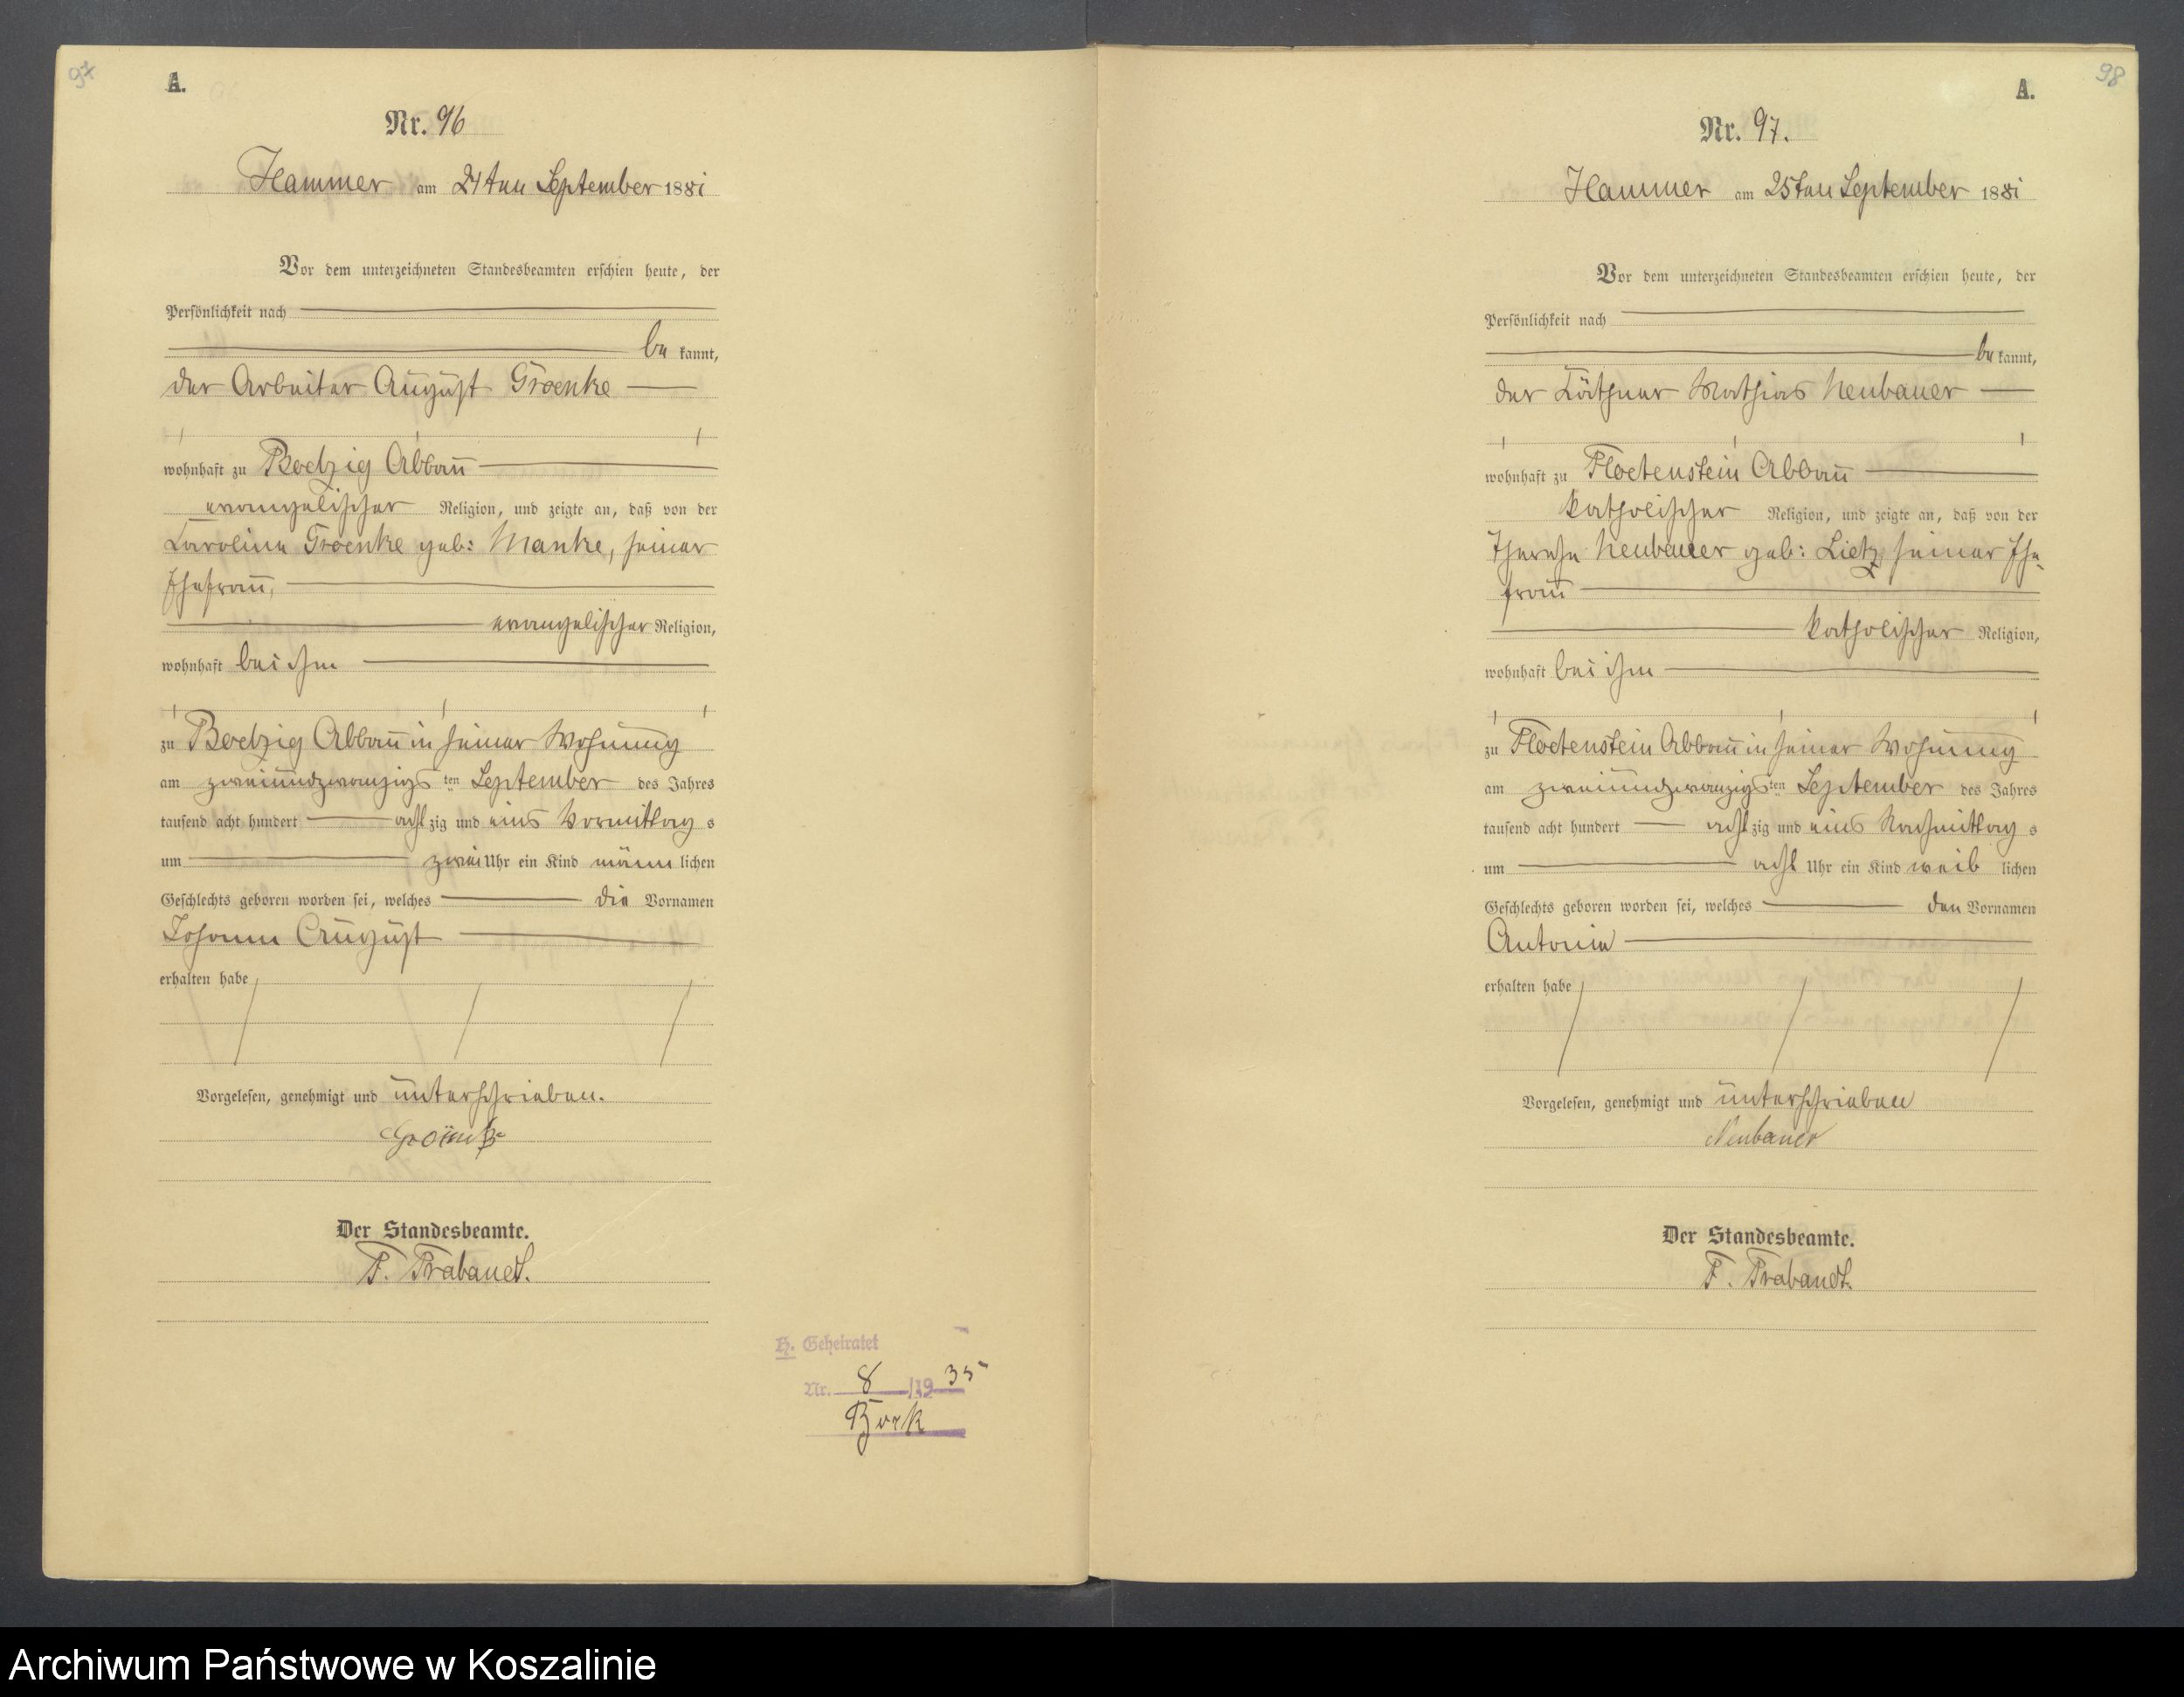 97
A.
Nr. 96
Hammer am 24ten September 1881
Vor dem unterzeichneten Standesbeamten erschien heute, der
Persönlichkeit nach
be kannt,
der Arbeiter August Groenke
wohnhaft zu Boelzig Abbau
evangelischer Religion, und zeigte an, daß von der
Karoline Groenke geb: Manke, seiner
Ehefrau,
evangelischer Religion,
wohnhaft bei ihm
zu Boelzig Abbau in seiner Wohnung
am zweiundzwanzigs ten September des Jahres
tausend acht hundert acht zig und eins Vormittag s
um zwei Uhr ein Kind männ lichen
Geschlechts geboren worden sei, welches die Vornamen
Johann August
erhalten habe
Vorgelesen, genehmigt und unterschrieben.
Der Standesbeamte.
F. Trabandt.
H. Geheiratet
Nr. 8 /19 35
Bork
98
A.
Nr. 97.
Hammer am 25ten September 1881
Vor dem unterzeichneten Standesbeamten erschien heute, der
Persönlichkeit nach
be kannt,
der Käthner Mathias Neubauer
wohnhaft zu Floetenstein Abbau
katholischer Religion, und zeigte an, daß von der
Therese Neubauer geb: Lietz, seiner Ehe-
frau
katholischer Religion,
wohnhaft bei ihm
zu Floetenstein Abbau in seiner Wohnung
am zweiundzwanzigs ten September des Jahres
tausend acht hundert acht zig und eins Nachmittag s
um acht Uhr ein Kind weib lichen
Geschlechts geboren worden sei, welches den Vornamen
Antonie
erhalten habe
Vorgelesen, genehmigt und unterschrieben
Neubauer
Der Standesbeamte.
F. Trabandt.
Archiwum Państwowe w Koszalinie